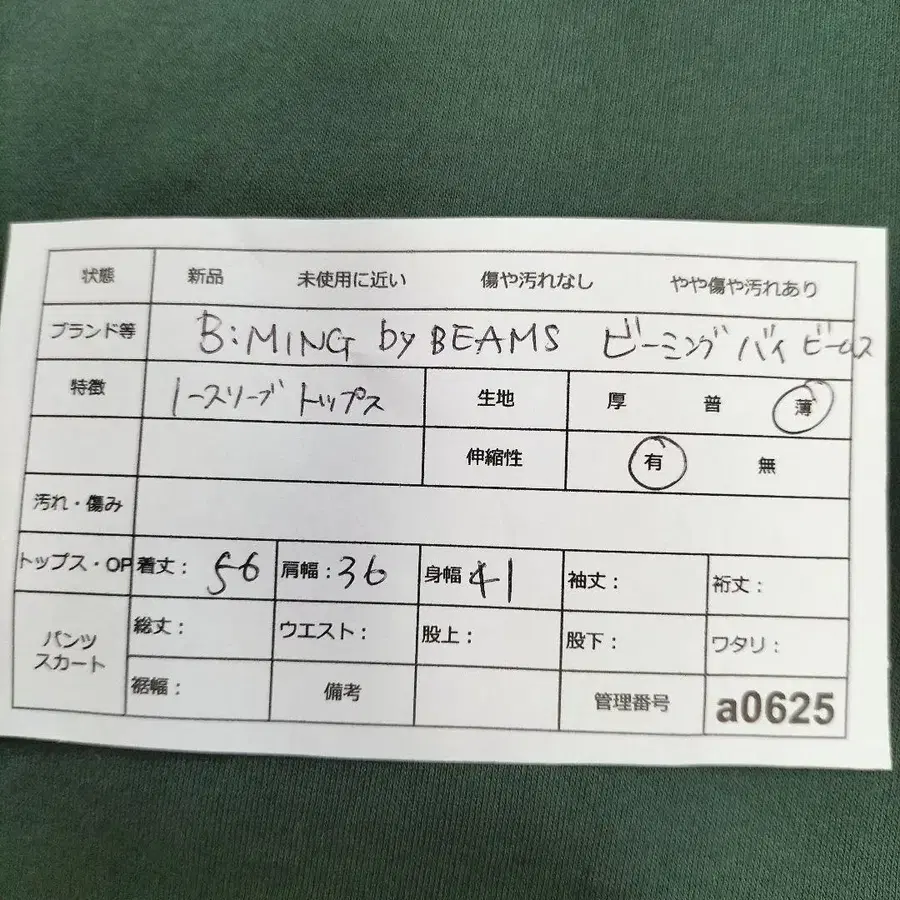 状態 新品 未使用に近い 傷や汚れなし やや傷や汚れあり
ブランド等 B:MING by BEAMS ビーミング バイ ビームス
特徴 ノースリーブ トップス 生地 厚 普 薄
伸縮性 有 無
汚れ・傷み
トップス・OP 着丈: 56 肩幅: 36 身幅: 41 袖丈: 裄丈:
パンツ スカート 総丈: ウエスト: 股上: 股下: ワタリ:
裾幅: 備考 管理番号 a0625